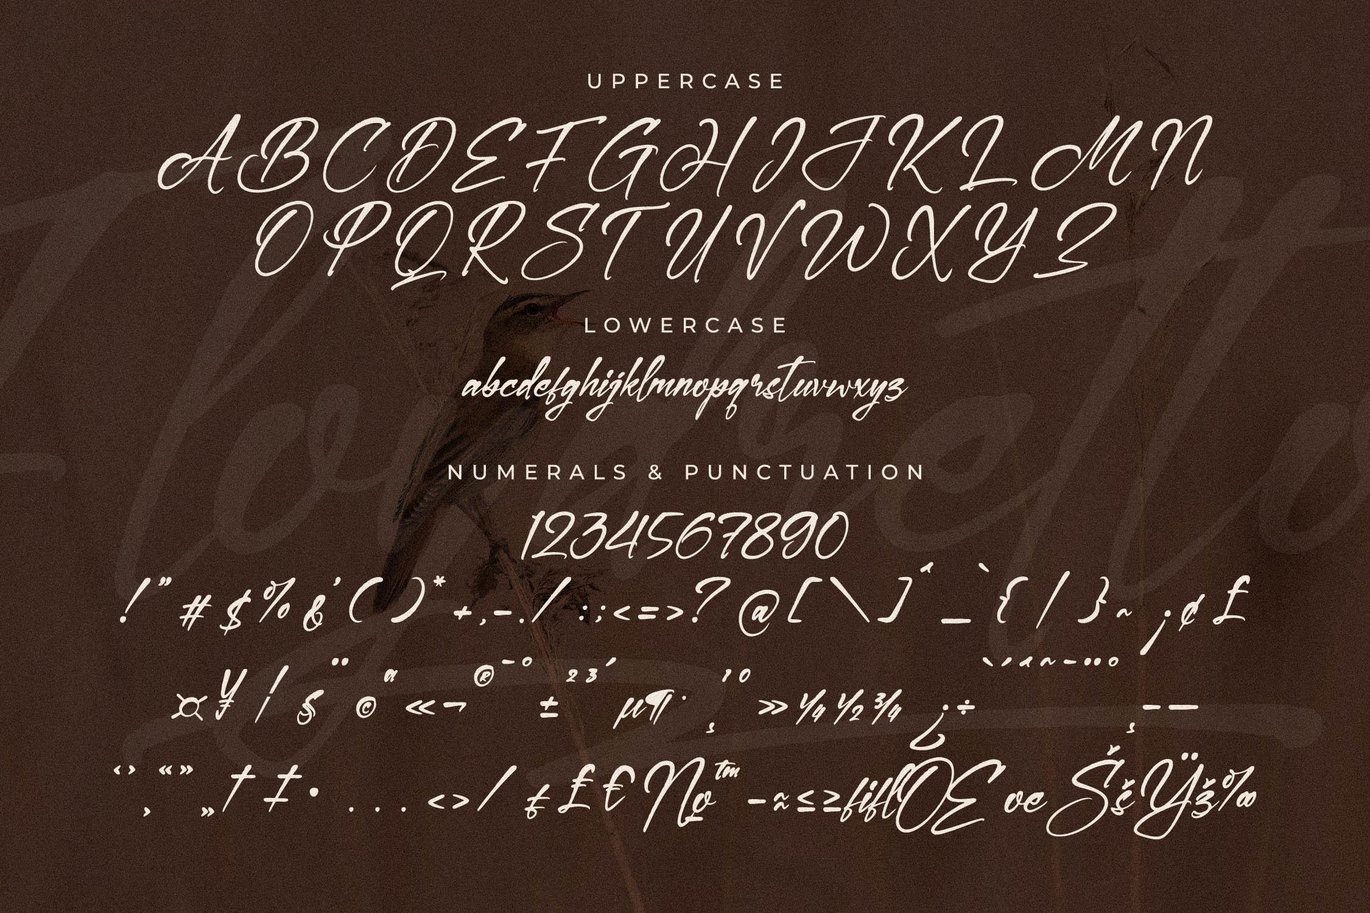 UPPERCASE
ABCDEFGHIJKLMN
OPQRSTUVWXYZ
LOWERCASE
abcdefghijklmnopqrstuvwxyz
NUMERALS & PUNCTUATION
1234567890
!"#$%&'()*+,-./:;<=>?@[\]^_`{|}~¡¢£
¤¥¦§¨©ª«¬®¯°±²³´µ¶·¸¹º»¼½¾¿÷`´ˆ˜¯˙¨˚¸–—
‘’‚“”„†‡•...‹›⁄₣₤€№™−≈≤≥fiflŒœŠšŸž‰